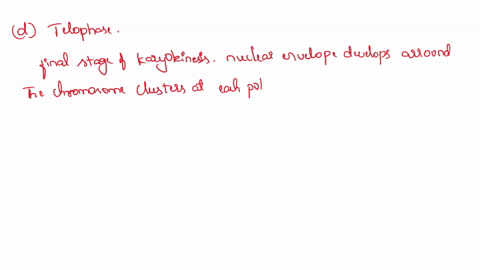 (d) Telophase.
final stage of karyokinesis. nuclear envelope develops arround
The chromosome clusters at each pol